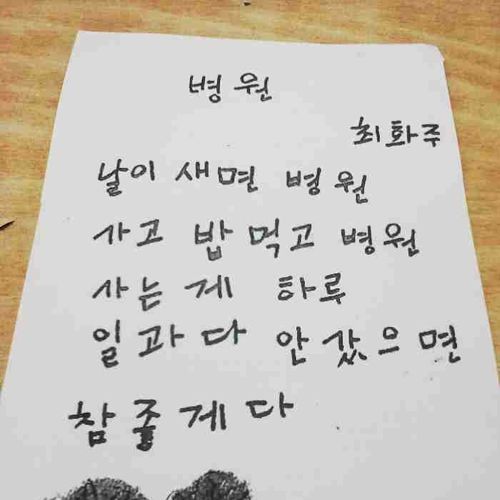 병원
최화주
날이 새면 병원
사고 밥 먹고 병원
사는 게 하루
일과다 안 갔으면
참좋게다